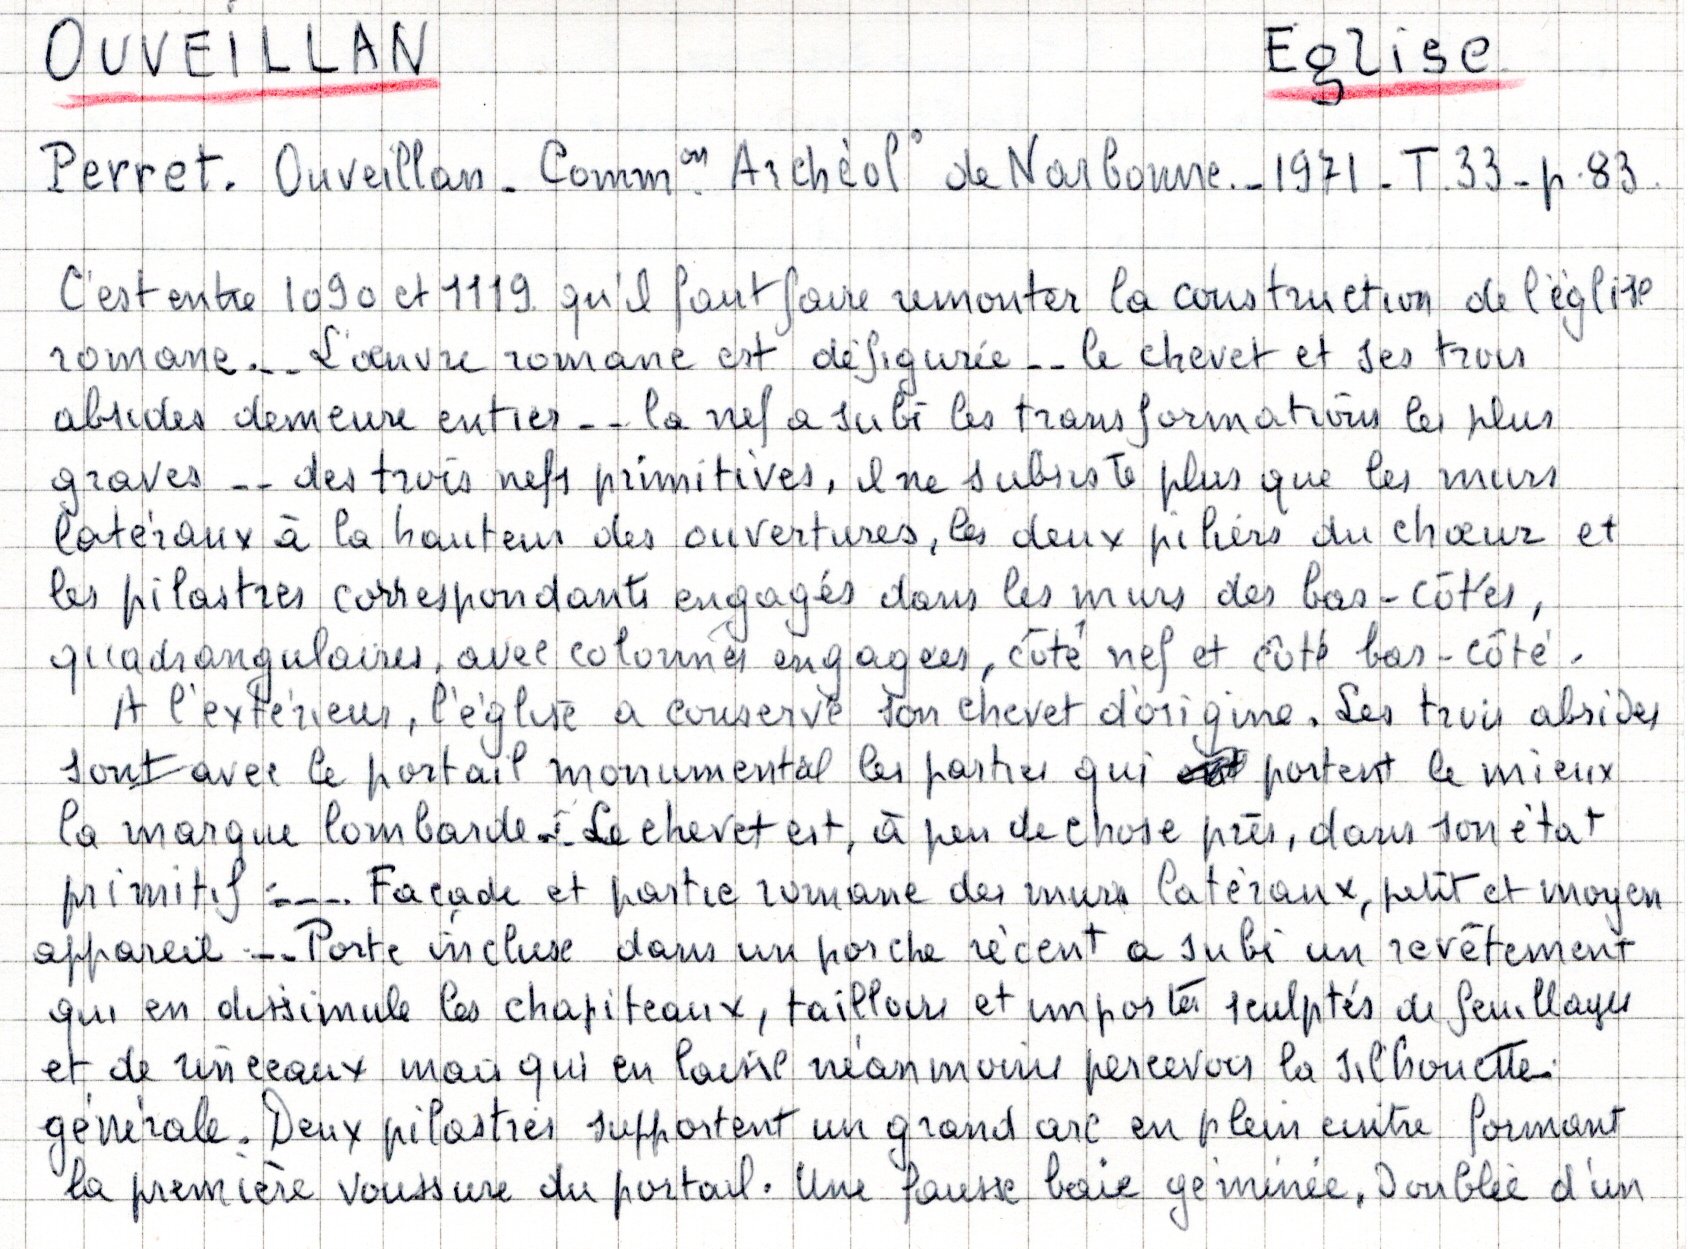 OUVEILLAN Eglise
Perret. Ouveillan - Comm.on Archéol° de Narbonne. - 1971 - T.33 - p.83.
C'est entre 1090 et 1119 qu'il faut faire remonter la construction de l'église
romane. -- L'œuvre romane est défigurée -- le chevet et ses trois
absides demeure entier -- la nef a subi les transformations les plus
graves -- des trois nefs primitives, il ne subsiste plus que les murs
latéraux à la hauteur des ouvertures, les deux piliers du chœur et
les pilastres correspondants engagés dans les murs des bas-côtés,
quadrangulaires, avec colonnes engagées, côté nef et côté bas-côté.
A l'extérieur, l'église a conservé son chevet d'origine. Les trois absides
sont avec le portail monumental les parties qui portent le mieux
la marque lombarde -- Le chevet est, à peu de chose près, dans son état
primitif : --- Façade et partie romane des murs latéraux, petit et moyen
appareil -- Porte incluse dans un porche récent a subi un revêtement
qui en dissimule les chapiteaux, tailloirs et impostes sculptés de feuillages
et de rinceaux mais qui en laisse néanmoins percevoir la silhouette
générale. Deux pilastres supportent un grand arc en plein cintre formant
la première voussure du portail. Une fausse baie géminée, doublée d'un